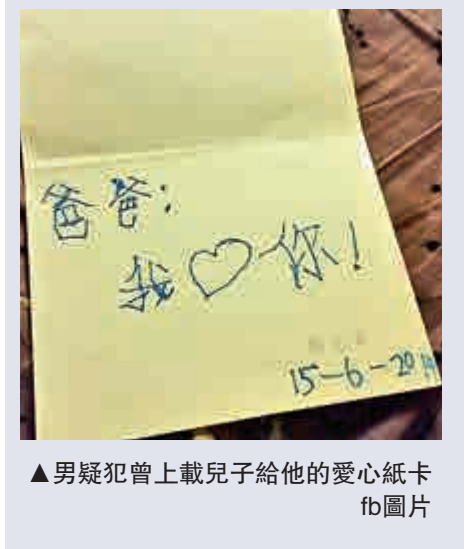 爸爸:
我♡你!
15-6-2014
▲男疑犯曾上載兒子給他的愛心紙卡
fb圖片